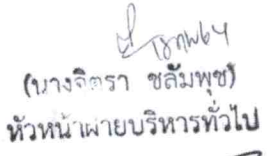 (นางจิตรา ชลัมพุช)
หัวหน้าฝ่ายบริหารทั่วไป